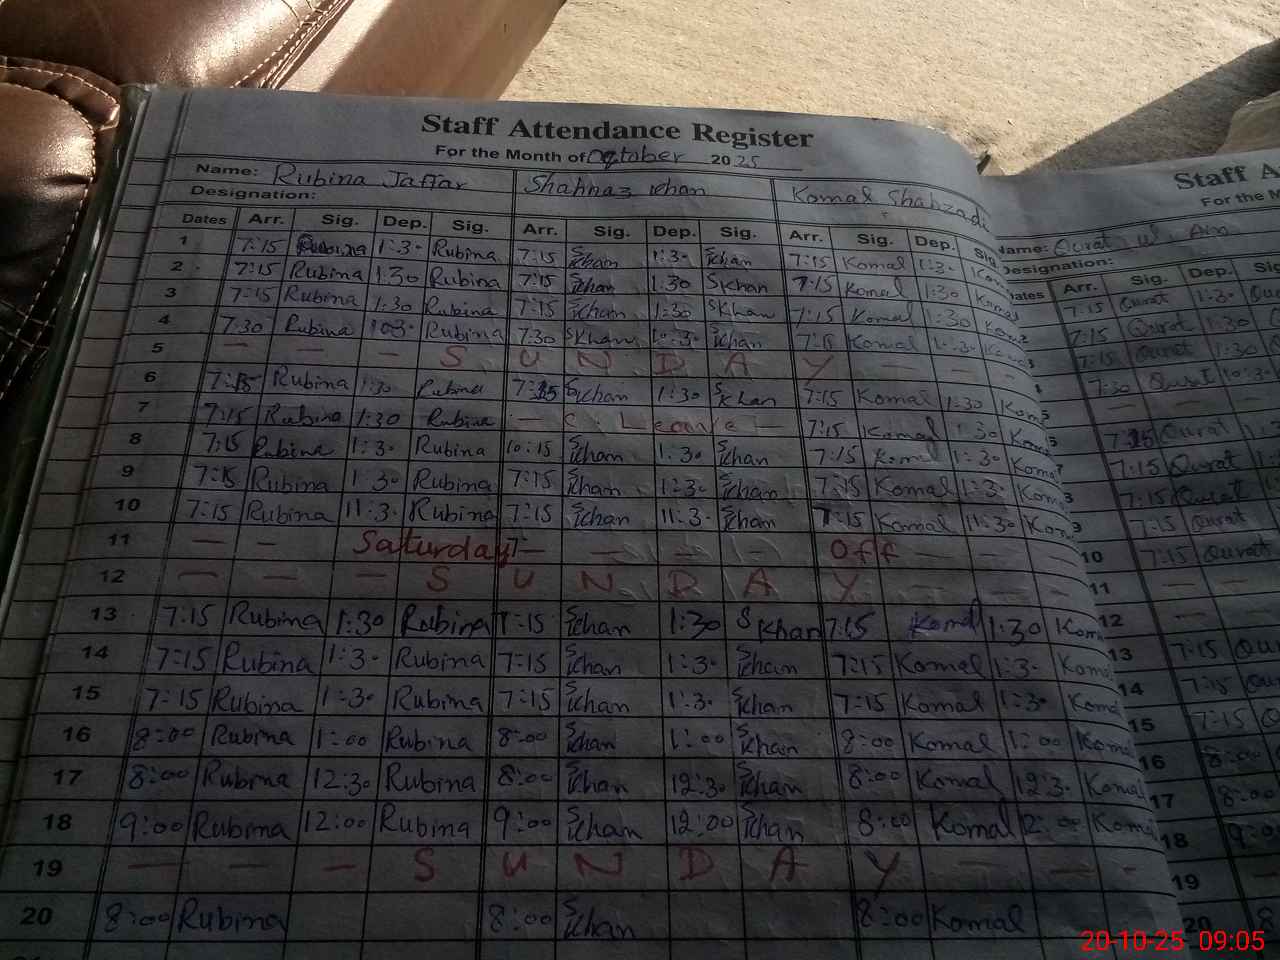 Staff Attendance Register
For the Month of October 2025
Name: Rubina Jaffar Shahnaz Khan Komal Shahzadi
Designation:
Dates Arr. Sig. Dep. Sig. Arr. Sig. Dep. Sig. Arr. Sig. Dep. Sig.
1 7:15 Rubina 1:30 Rubina 7:15 S Khan 1:30 S Khan 7:15 Komal 1:30
2 7:15 Rubina 1:30 Rubina 7:15 S Khan 1:30 S Khan 7:15 Komal 1:30
3 7:15 Rubina 1:30 Rubina 7:15 S Khan 1:30 S Khan 7:15 Komal 1:30
4 7:30 Rubina Rubina 7:30 S Khan 10:30 S Khan Komal
5 — — — S U N D A Y — —
6 7:15 Rubina 1:30 Rubina 7:15 S Khan 1:30 S Khan 7:15 Komal 1:30
7 7:15 Rubina 1:30 Rubina — C. Leave — 7:15 Komal 1:30
8 7:15 Rubina 1:30 Rubina 10:15 S Khan 1:30 S Khan 7:15 Komal 1:30
9 7:15 Rubina 1:30 Rubina 7:15 S Khan 1:30 S Khan 7:15 Komal 1:30
10 7:15 Rubina 11:30 Rubina 7:15 S Khan 11:30 S Khan 7:15 Komal 11:30
11 — — Saturday — — — — Off — — —
12 — — — S U N D A Y — — —
13 7:15 Rubina 1:30 Rubina 7:15 S Khan 1:30 S Khan 7:15 Komal 1:30
14 7:15 Rubina 1:30 Rubina 7:15 S Khan 1:30 S Khan 7:15 Komal 1:30 Komal
15 7:15 Rubina 1:30 Rubina 7:15 S Khan 1:30 S Khan 7:15 Komal 1:30 Komal
16 8:00 Rubina 1:00 Rubina 8:00 S Khan 1:00 S Khan 8:00 Komal 1:00 Komal
17 8:00 Rubina 12:30 Rubina 8:00 S Khan 12:30 S Khan 8:00 Komal 12:30 Komal
18 9:00 Rubina 12:00 Rubina 9:00 S Khan 12:00 S Khan 8:00 Komal 12:00 Komal
19 — — — S U N D A Y — — -
20 8:00 Rubina 8:00 S Khan 8:00 Komal
Staff A
For the M
Name: Qurat ul Ain
Designation:
Dates Arr. Sig. Dep.
7:15 Qurat 1:30
7:15 Qurat 1:30
7:15 Qurat 1:30
7:30 Qurat 10:30
5 — —
7:15 Qurat
7:15 Qurat
7:15 Qurat
7:15 Qurat
10 7:15 Qurat
11 — —
12
13 7:15
14 7:15
15 7:15
16 8:00
17 8:00
18 9:00
19 —
20
20-10-25 09:05